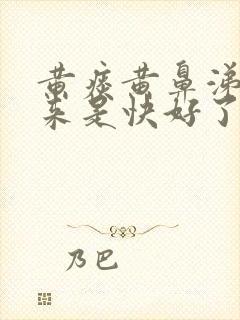 黄痰黄鼻涕
来是快好了
乃巴